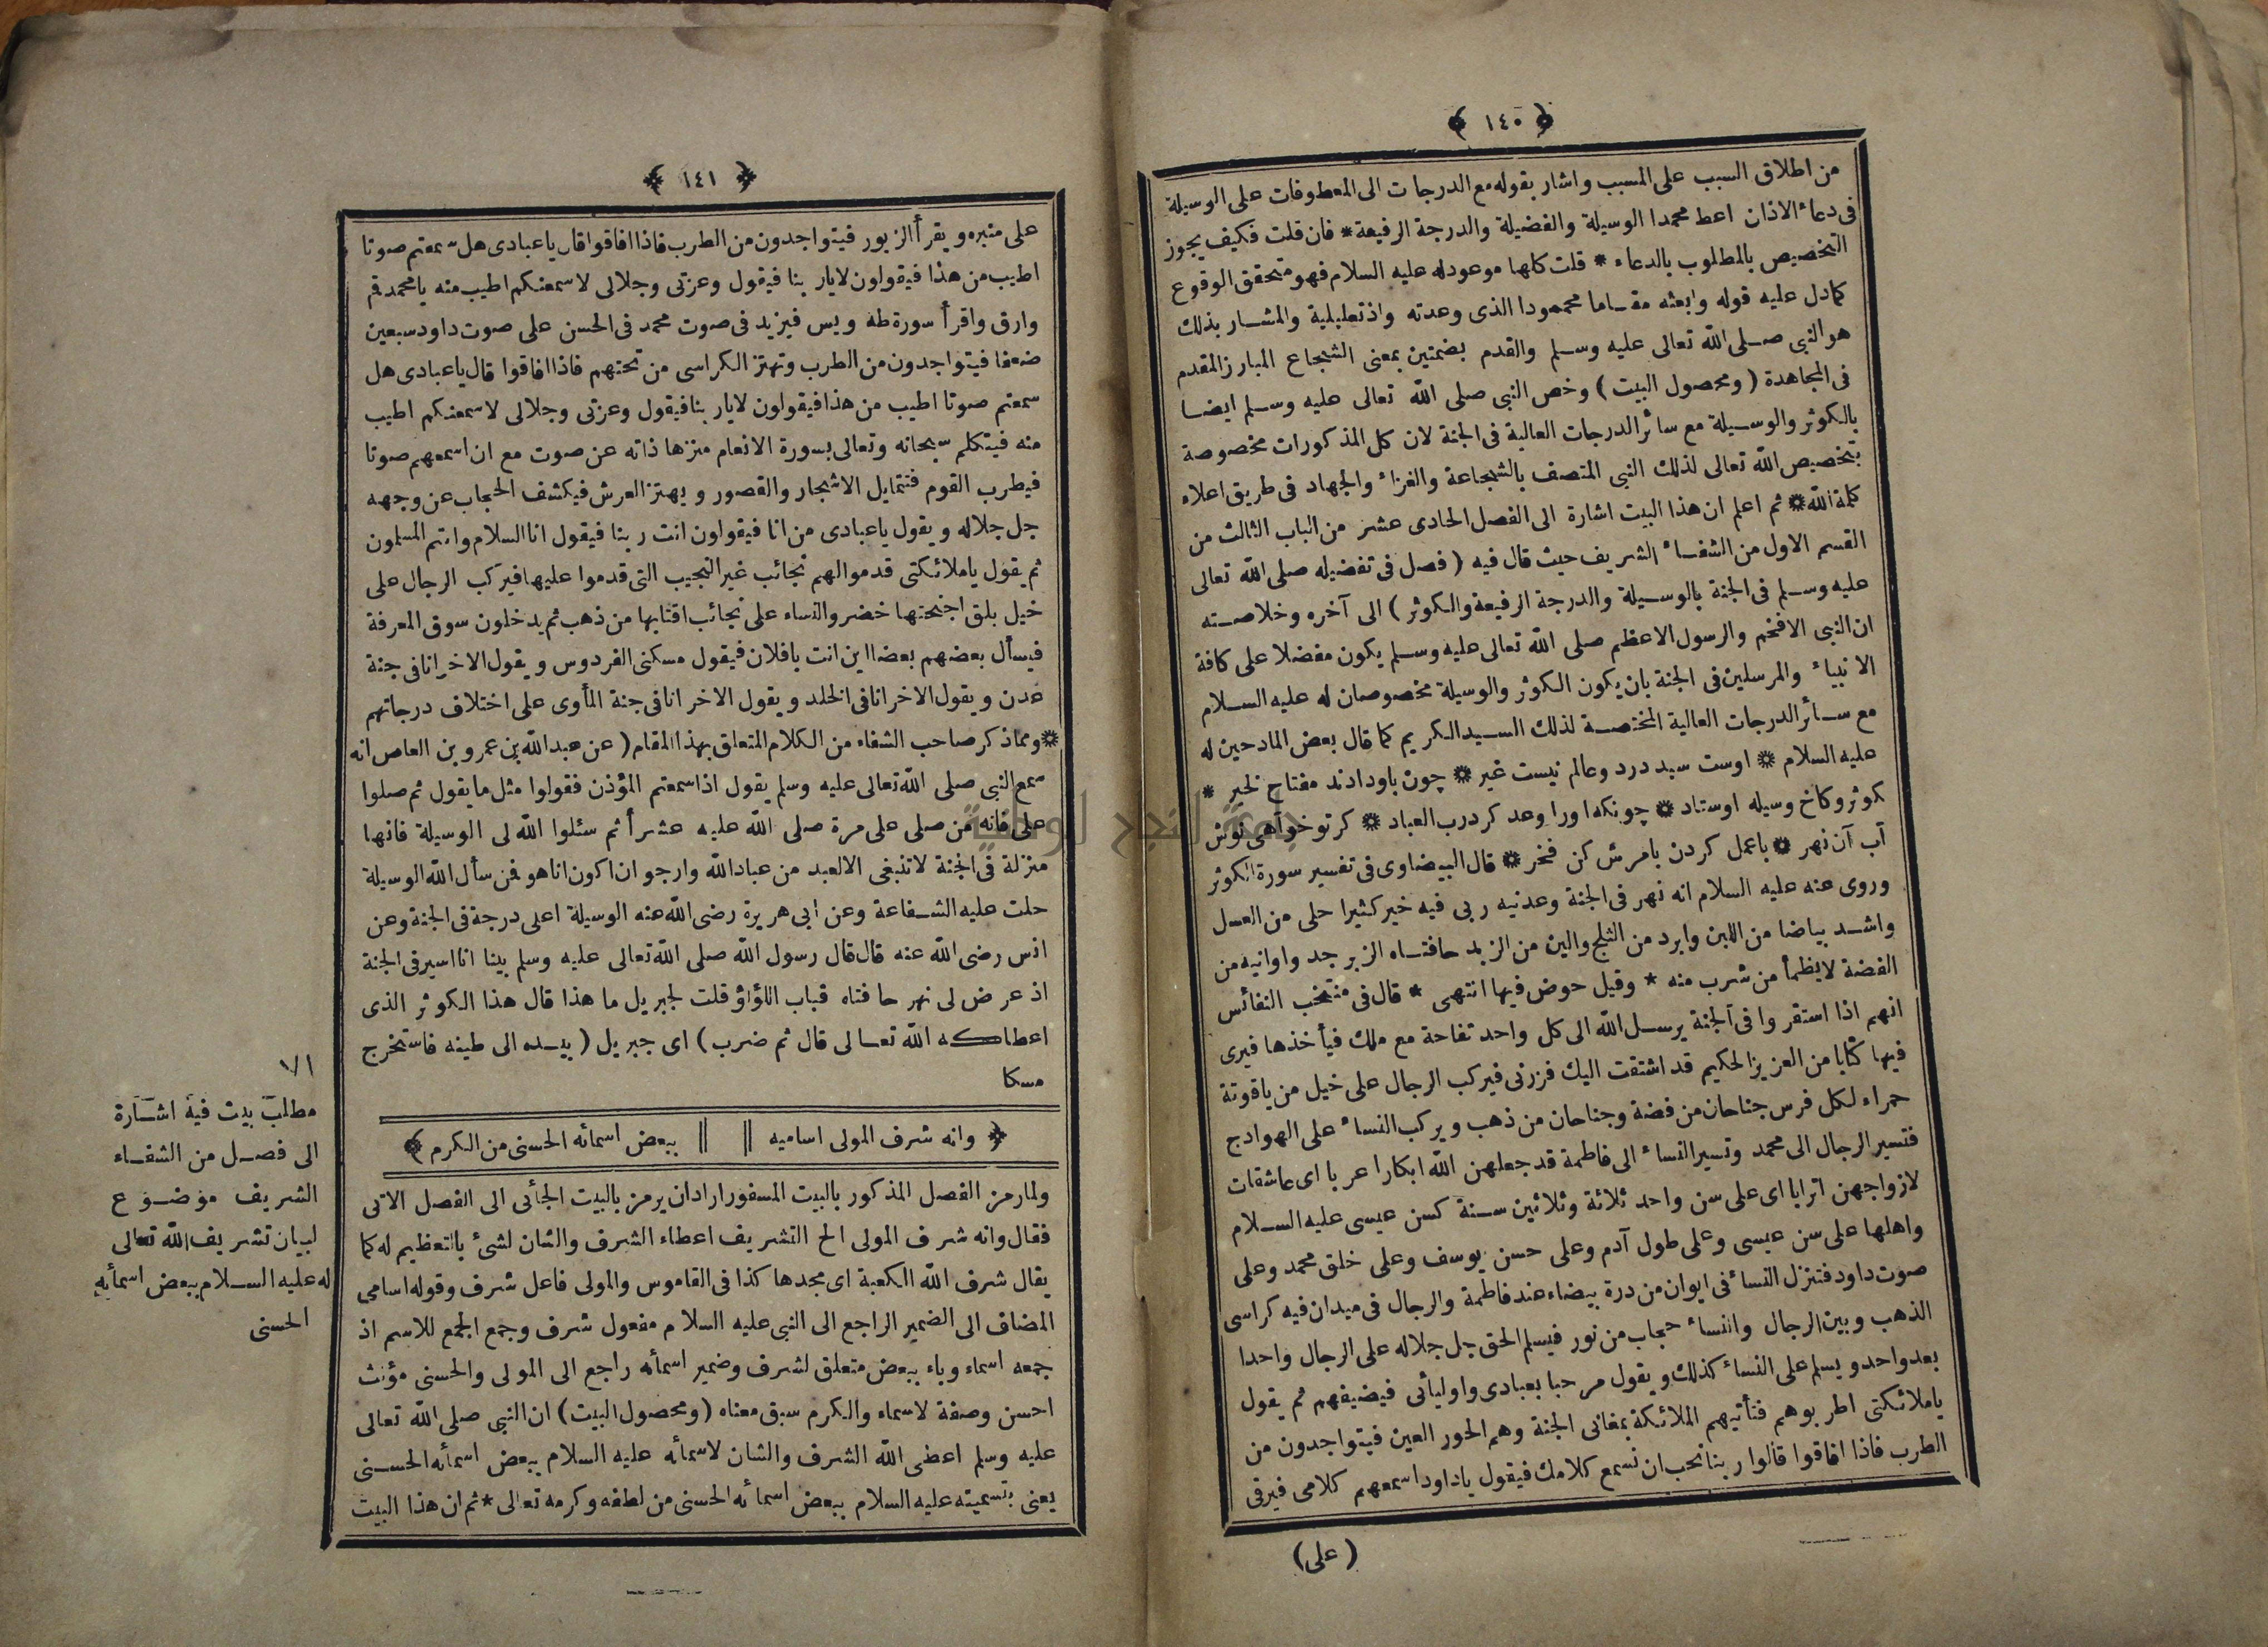 ﴿ ١٤٠ ﴾
من اطلاق السبب على المسبب واشار بقوله مع الدرجات الى المعطوفات على الوسيلة
فى دعاء الاذان اعط محمدا الوسيلة والفضيلة والدرجة الرفيعة * فان قلت فكيف يجوز
التخصيص بالمطلوب بالدعاء * قلت كلها موعود له عليه السلام فهو متحقق الوقوع
كما دل عليه قوله وابعثه مقاما محمودا الذى وعدته واذ تعليلية والمشار بذلك
هو النبى صلى الله تعالى عليه وسلم والقدم بضمتين بمعنى الشجاع المبارز المقدم
فى المجاهدة ( ومحصول البيت ) وخص النبى صلى الله تعالى عليه وسلم ايضا
بالكوثر والوسيلة مع سائر الدرجات العالية فى الجنة لان كل المذكورات مخصوصة
بتخصيص الله تعالى لذلك النبى المتصف بالشجاعة والغزاء والجهاد فى طريق اعلاء
كلمة الله * ثم اعلم ان هذا البيت اشارة الى الفصل الحادى عشر من الباب الثالث من
القسم الاول من الشفاء الشريف حيث قال فيه ( فصل فى تفضيله صلى الله تعالى
عليه وسلم فى الجنة بالوسيلة والدرجة الرفيعة والكوثر ) الى آخره وخلاصته
ان النبى الافخم والرسول الاعظم صلى الله تعالى عليه وسلم يكون مفضلا على كافة
الانبياء والمرسلين فى الجنة بان يكون الكوثر والوسيلة مخصوصان له عليه السلام
مع سائر الدرجات العالية المختصة لذلك السيد الكريم كما قال بعض المادحين له
عليه السلام * اوست سيد درد وعالم نيست غير * چون باو دادند مفتاح لخير *
كوثر وكاخ وسيله اوستاد * چونكه اورا وعد كرد رب العباد * كر تو خواهى نوش
آب آن نهر * باعمل كردن بامرش كن فخر * قال البيضاوى فى تفسير سورة الكوثر
وروى عنه عليه السلام انه نهر فى الجنة وعدنيه ربى فيه خير كثيرا حلى من العسل
واشد بياضا من اللبن وابرد من الثلج والين من الزبد حافتاه الزبرجد واوانيه من
الفضة لا يظمأ من شرب منه * وقيل حوض فيها انتهى * قال فى منتخب النفائس
انهم اذا استقروا فى الجنة يرسل الله الى كل واحد تفاحة مع ملك فيأخذها فيرى
فيها كتابا من العزيز الحكيم قد اشتقت اليك فزرنى فيركب الرجال على خيل من ياقوتة
حمراء لكل فرس جناحان من فضة وجناحان من ذهب ويركب النساء على الهوادج
فتسير الرجال الى محمد وتسير النساء الى فاطمة قد جعلهن الله ابكارا عربا اى عاشقات
لازواجهن اترابا اى على سن واحد ثلاثة وثلاثين سنة كسن عيسى عليه السلام
واهلها على سن عيسى وعلى طول آدم وعلى حسن يوسف وعلى خلق محمد وعلى
صوت داود فتنزل النساء فى ايوان من درة بيضاء عند فاطمة والرجال فى ميدان فيه كراسى
الذهب وبين الرجال والنساء حجاب من نور فيسلم الحق جل جلاله على الرجال واحدا
بعد واحد ويسلم على النساء كذلك ويقول مرحبا بعبادى واوليائى فيضيفهم ثم يقول
ياملائكتى اطربوهم فتأتيهم الملائكة بمغانى الجنة وهم الحور العين فيتواجدون من
الطرب فاذا افاقوا قالوا ربنا نحب ان نسمع كلامك فيقول ياداود اسمعهم كلامى فيرقى
( على )
﴿ ١٤١ ﴾
على منبره ويقرأ الزبور فيتواجدون من الطرب فاذا افاقوا قال ياعبادى هل سمعتم صوتا
اطيب من هذا فيقولون لا يار بنا فيقول وعزتى وجلالى لاسمعنكم اطيب منه يامحمد قم
وارق واقرأ سورة طه ويس فيزيد فى صوت محمد فى الحسن على صوت داود سبعين
ضعفا فيتواجدون من الطرب وتهتز الكراسى من تحتهم فاذا افاقوا قال ياعبادى هل
سمعتم صوتا اطيب من هذا فيقولون لا يار بنا فيقول وعزتى وجلالى لاسمعنكم اطيب
منه فيتكلم سبحانه وتعالى بسورة الانعام منزها ذاته عن صوت مع ان اسمعهم صوتا
فيطرب القوم فتتمايل الاشجار والقصور ويهتز العرش فيكشف الحجاب عن وجهه
جل جلاله ويقول ياعبادى من انا فيقولون انت ربنا فيقول انا السلام وانتم المسلمون
ثم يقول ياملائكتى قدموا لهم نجائب غير النجيب التى قدموا عليها فيركب الرجال على
خيل بلق اجنحتها خضر والنساء على نجائب اقتابها من ذهب ثم يدخلون سوق المعرفة
فيسأل بعضهم بعضا اين انت يافلان فيقول مسكنى الفردوس ويقول الاخر انا فى جنة
عدن ويقول الاخر انا فى الخلد ويقول الاخر انا فى جنة المأوى على اختلاف درجاتهم
* ومما ذكر صاحب الشفاء من الكلام المتعلق بهذا المقام ( عن عبد الله بن عمرو بن العاص انه
سمع النبى صلى الله تعالى عليه وسلم يقول اذا سمعتم المؤذن فقولوا مثل ما يقول ثم صلوا
على فانه من صلى على مرة صلى الله عليه عشرأ ثم سئلوا الله لى الوسيلة فانها
منزلة فى الجنة لا تنبغى الا لعبد من عباد الله وارجو ان اكون انا هو فمن سأل الله الوسيلة
حلت عليه الشفاعة وعن ابى هريرة رضى الله عنه الوسيلة اعلى درجة فى الجنة وعن
انس رضى الله عنه قال قال رسول الله صلى الله تعالى عليه وسلم بينا انا اسير فى الجنة
اذ عرض لى نهر حافتاه قباب اللؤلؤ قلت لجبريل ما هذا قال هذا الكوثر الذى
اعطاكه الله تعالى قال ثم ضرب ) اى جبريل ( بيده الى طينه فاستخرج
مسكا
﴿ وانه شرف المولى اساميه || || ببعض اسمائه الحسنى من الكرم ﴾
ولما رمز الفصل المذكور بالبيت المسفور اراد ان يرمز بالبيت الجائى الى الفصل الاتى
فقال وانه شرف المولى الخ التشريف اعطاء الشرف والشان لشئ بالتعظيم له كما
يقال شرف الله الكعبة اى مجدها كذا فى القاموس والمولى فاعل شرف وقوله اسامى
المضاف الى الضمير الراجع الى النبى عليه السلام مفعول شرف وجمع الجمع للاسم اذ
جمعه اسماء وباء ببعض متعلق لشرف وضمير اسمائه راجع الى المولى والحسنى مؤنث
احسن وصفة لاسماء والكرم سبق معناه ( ومحصول البيت ) ان النبى صلى الله تعالى
عليه وسلم اعطى الله الشرف والشان لاسمائه عليه السلام ببعض اسمائه الحسنى
يعنى بتسميته عليه السلام ببعض اسمائه الحسنى من لطفه وكرمه تعالى * ثم ان هذا البيت
٧١
مطلب بيت فيه اشارة
الى فصل من الشفاء
الشريف موضوع
لبيان تشريف الله تعالى
له عليه السلام ببعض اسمائه
الحسنى
جامعة النجاح الوطنية